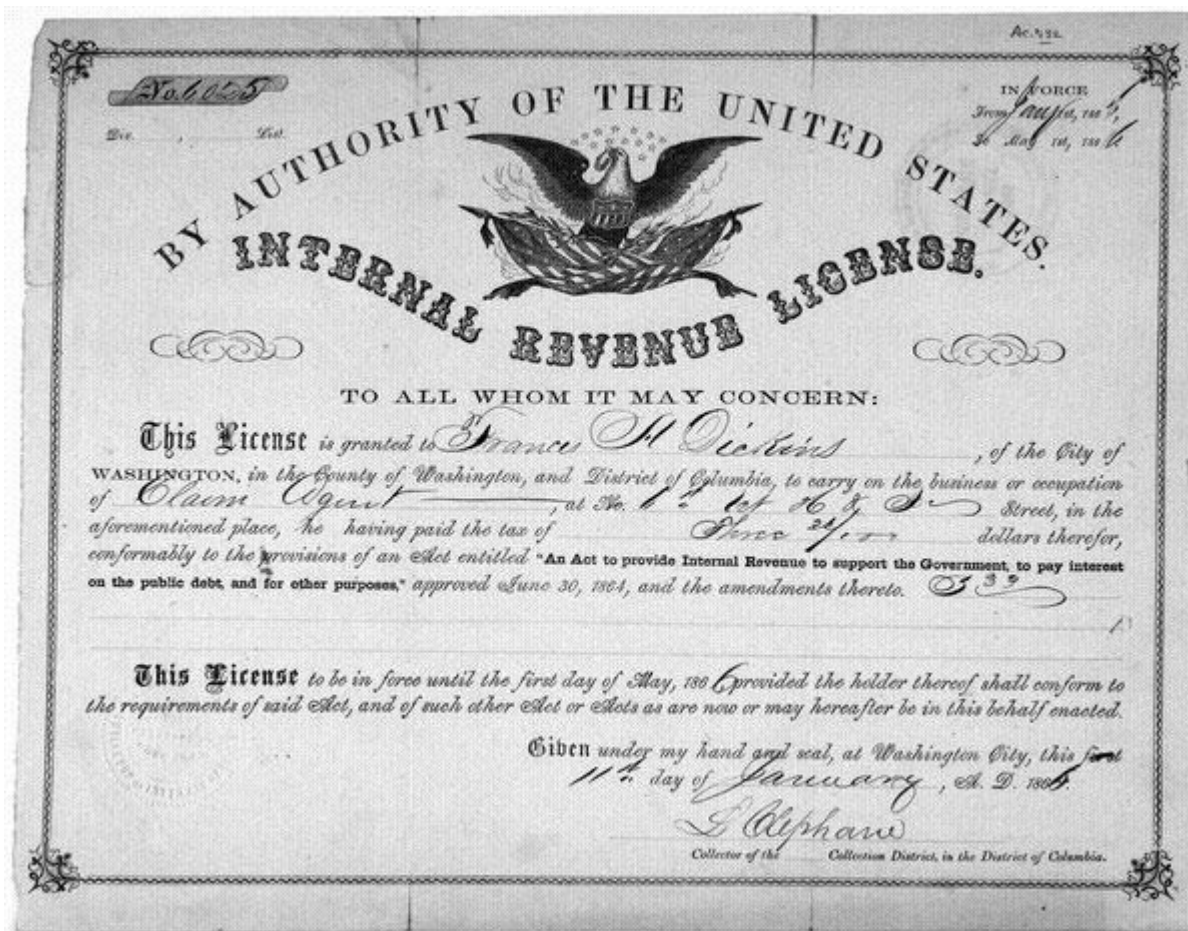 No. 6025
IN FORCE
Div. , List.
From Jany 1st, 186
To May 1st, 1866
BY AUTHORITY OF THE UNITED STATES.
INTERNAL REVENUE LICENSE.
TO ALL WHOM IT MAY CONCERN:
This License is granted to Francis H Dickins, of the City of
WASHINGTON, in the County of Washington, and District of Columbia, to carry on the business or occupation
of Claim Agent, at No. Street, in the
aforementioned place, he having paid the tax of Three dollars therefor,
conformably to the provisions of an Act entitled "An Act to provide Internal Revenue to support the Government, to pay interest
on the public debt, and for other purposes," approved June 30, 1864, and the amendments thereto.
This License to be in force until the first day of May, 1866 provided the holder thereof shall conform to
the requirements of said Act, and of such other Act or Acts as are now or may hereafter be in this behalf enacted.
Given under my hand and seal, at Washington City, this first
11th day of January, A. D. 1866.
L Clephane
Collector of the Collection District, in the District of Columbia.